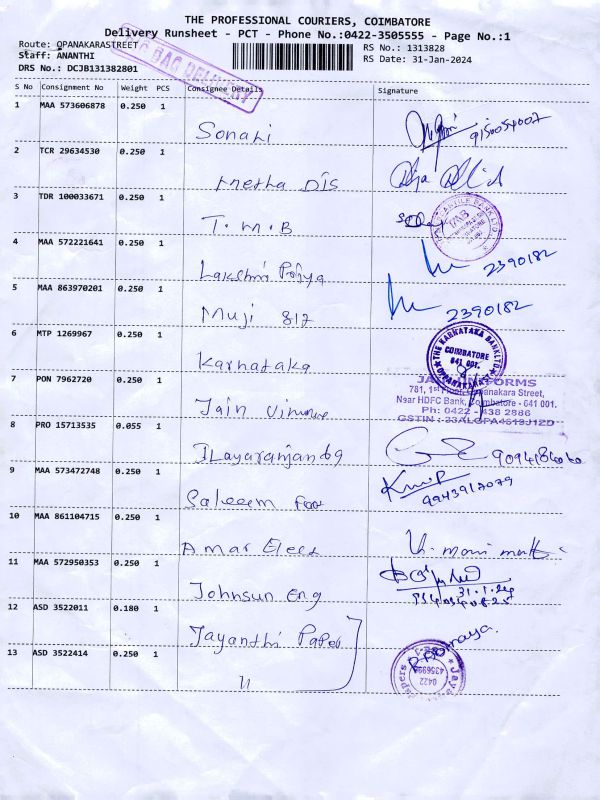 THE PROFESSIONAL COURIERS, COIMBATORE
Delivery Runsheet - PCT - Phone No.:0422-3505555 - Page No.:1
Route: OPANAKARASTREET
RS No.: 1313828
Staff: ANANTHI
RS Date: 31-Jan-2024
DRS No.: DCJB131382801
BAG DELIVERY
S No Consignment No Weight PCS Consignee Details Signature
1 MAA 573606878 0.250 1 Sonali
2 TCR 29634530 0.250 1 Metha Dis
3 TDR 100033671 0.250 1 T.M.B
4 MAA 572221641 0.250 1 Lakshmi Priya 2390182
5 MAA 863970201 0.250 1 Muji 817 2390182
6 MTP 1269967 0.250 1 Karnataka
THE KARNATAKA BANK LTD
COIMBATORE
641 001.
7 PON 7962720 0.250 1 Jain
781, 1st Floor, Oppanakara Street,
Near HDFC Bank, Coimbatore - 641 001.
Ph: 0422 - 438 2886
8 PRO 15713535 0.055 1
9 MAA 573472748 0.250 1 Saleem 9943917079
10 MAA 861104715 0.250 1 Amar Elect
11 MAA 572950353 0.250 1 Johnsun Eng 31.1.24
12 ASD 3522011 0.180 1 Jayanthi Paper
13 ASD 3522414 0.250 1 "
0422
4356998